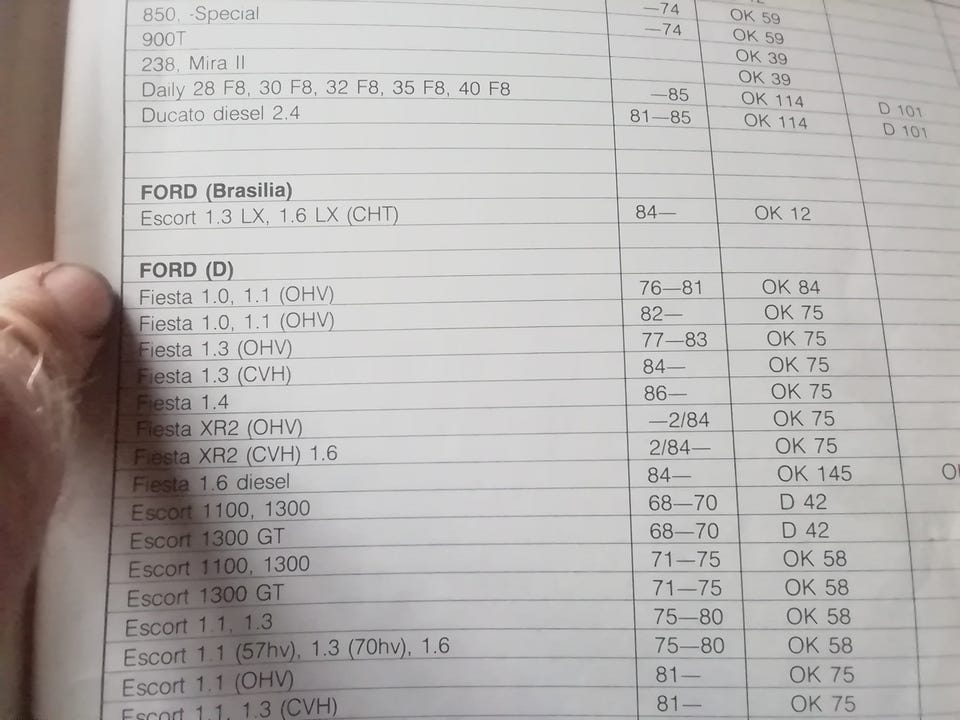 —74 OK 59
850, -Special —74 OK 59
900T OK 39
238, Mira II OK 39
Daily 28 F8, 30 F8, 32 F8, 35 F8, 40 F8 —85 OK 114 D 101
Ducato diesel 2.4 81—85 OK 114 D 101
FORD (Brasilia)
Escort 1.3 LX, 1.6 LX (CHT) 84— OK 12
FORD (D)
Fiesta 1.0, 1.1 (OHV) 76—81 OK 84
Fiesta 1.0, 1.1 (OHV) 82— OK 75
Fiesta 1.3 (OHV) 77—83 OK 75
Fiesta 1.3 (CVH) 84— OK 75
Fiesta 1.4 86— OK 75
Fiesta XR2 (OHV) —2/84 OK 75
Fiesta XR2 (CVH) 1.6 2/84— OK 75
Fiesta 1.6 diesel 84— OK 145
Escort 1100, 1300 68—70 D 42
Escort 1300 GT 68—70 D 42
Escort 1100, 1300 71—75 OK 58
Escort 1300 GT 71—75 OK 58
Escort 1.1, 1.3 75—80 OK 58
Escort 1.1 (57hv), 1.3 (70hv), 1.6 75—80 OK 58
Escort 1.1 (OHV) 81— OK 75
Escort 1.1, 1.3 (CVH) 81— OK 75